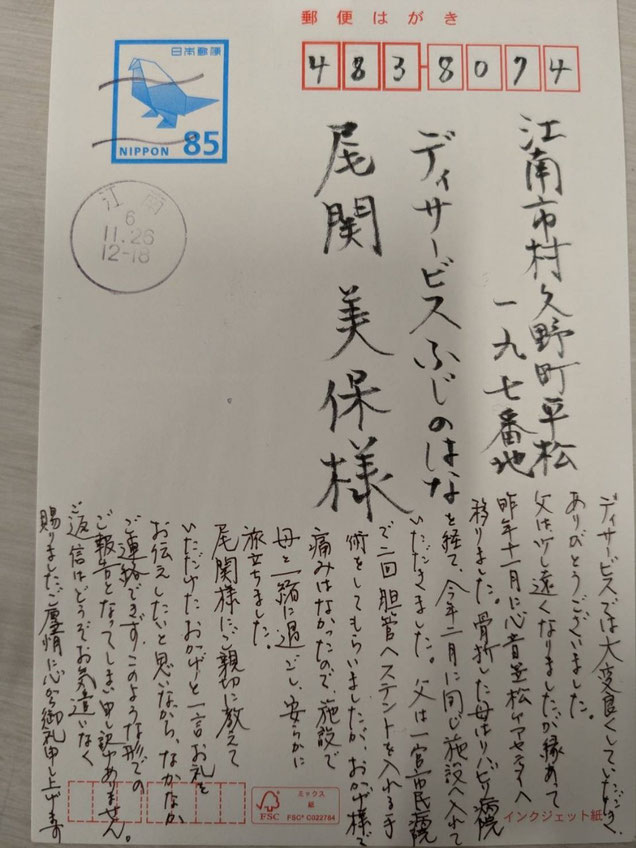 郵便はがき
日本郵便
NIPPON 85
江南
6
11.26
12-18
483-8074
江南市村久野町平松
一九七番地
ディサービスふじのはな
尾関美保様
ディサービスでは大変良くしていただき、
ありがとうございました。
父は少し遠くなりましたが縁あって
昨年十一月に心音並松ケアセンターへ
移りました。骨折した母はリハビリ病院
を経て、今年二月に同じ施設へ入れて
いただきました。父は一宮市民病院
で二回胆管へステントを入れる手
術をしてもらいましたが、おかげ様で
痛みはなかったので、施設で
母と一緒に過ごし、安らかに
旅立ちました。
尾関様にご親切に教えて
いただけたおかげと一言お礼を
お伝えしたいと思いながら、なかなか
ご連絡できず、このような形での
ご報告となってしまい申し訳ありません。
ご返信はどうぞお気遣いなく
賜りましたご厚情に心から御礼申し上げます
ミックス
紙
FSC
FSC® C022784
インクジェット紙